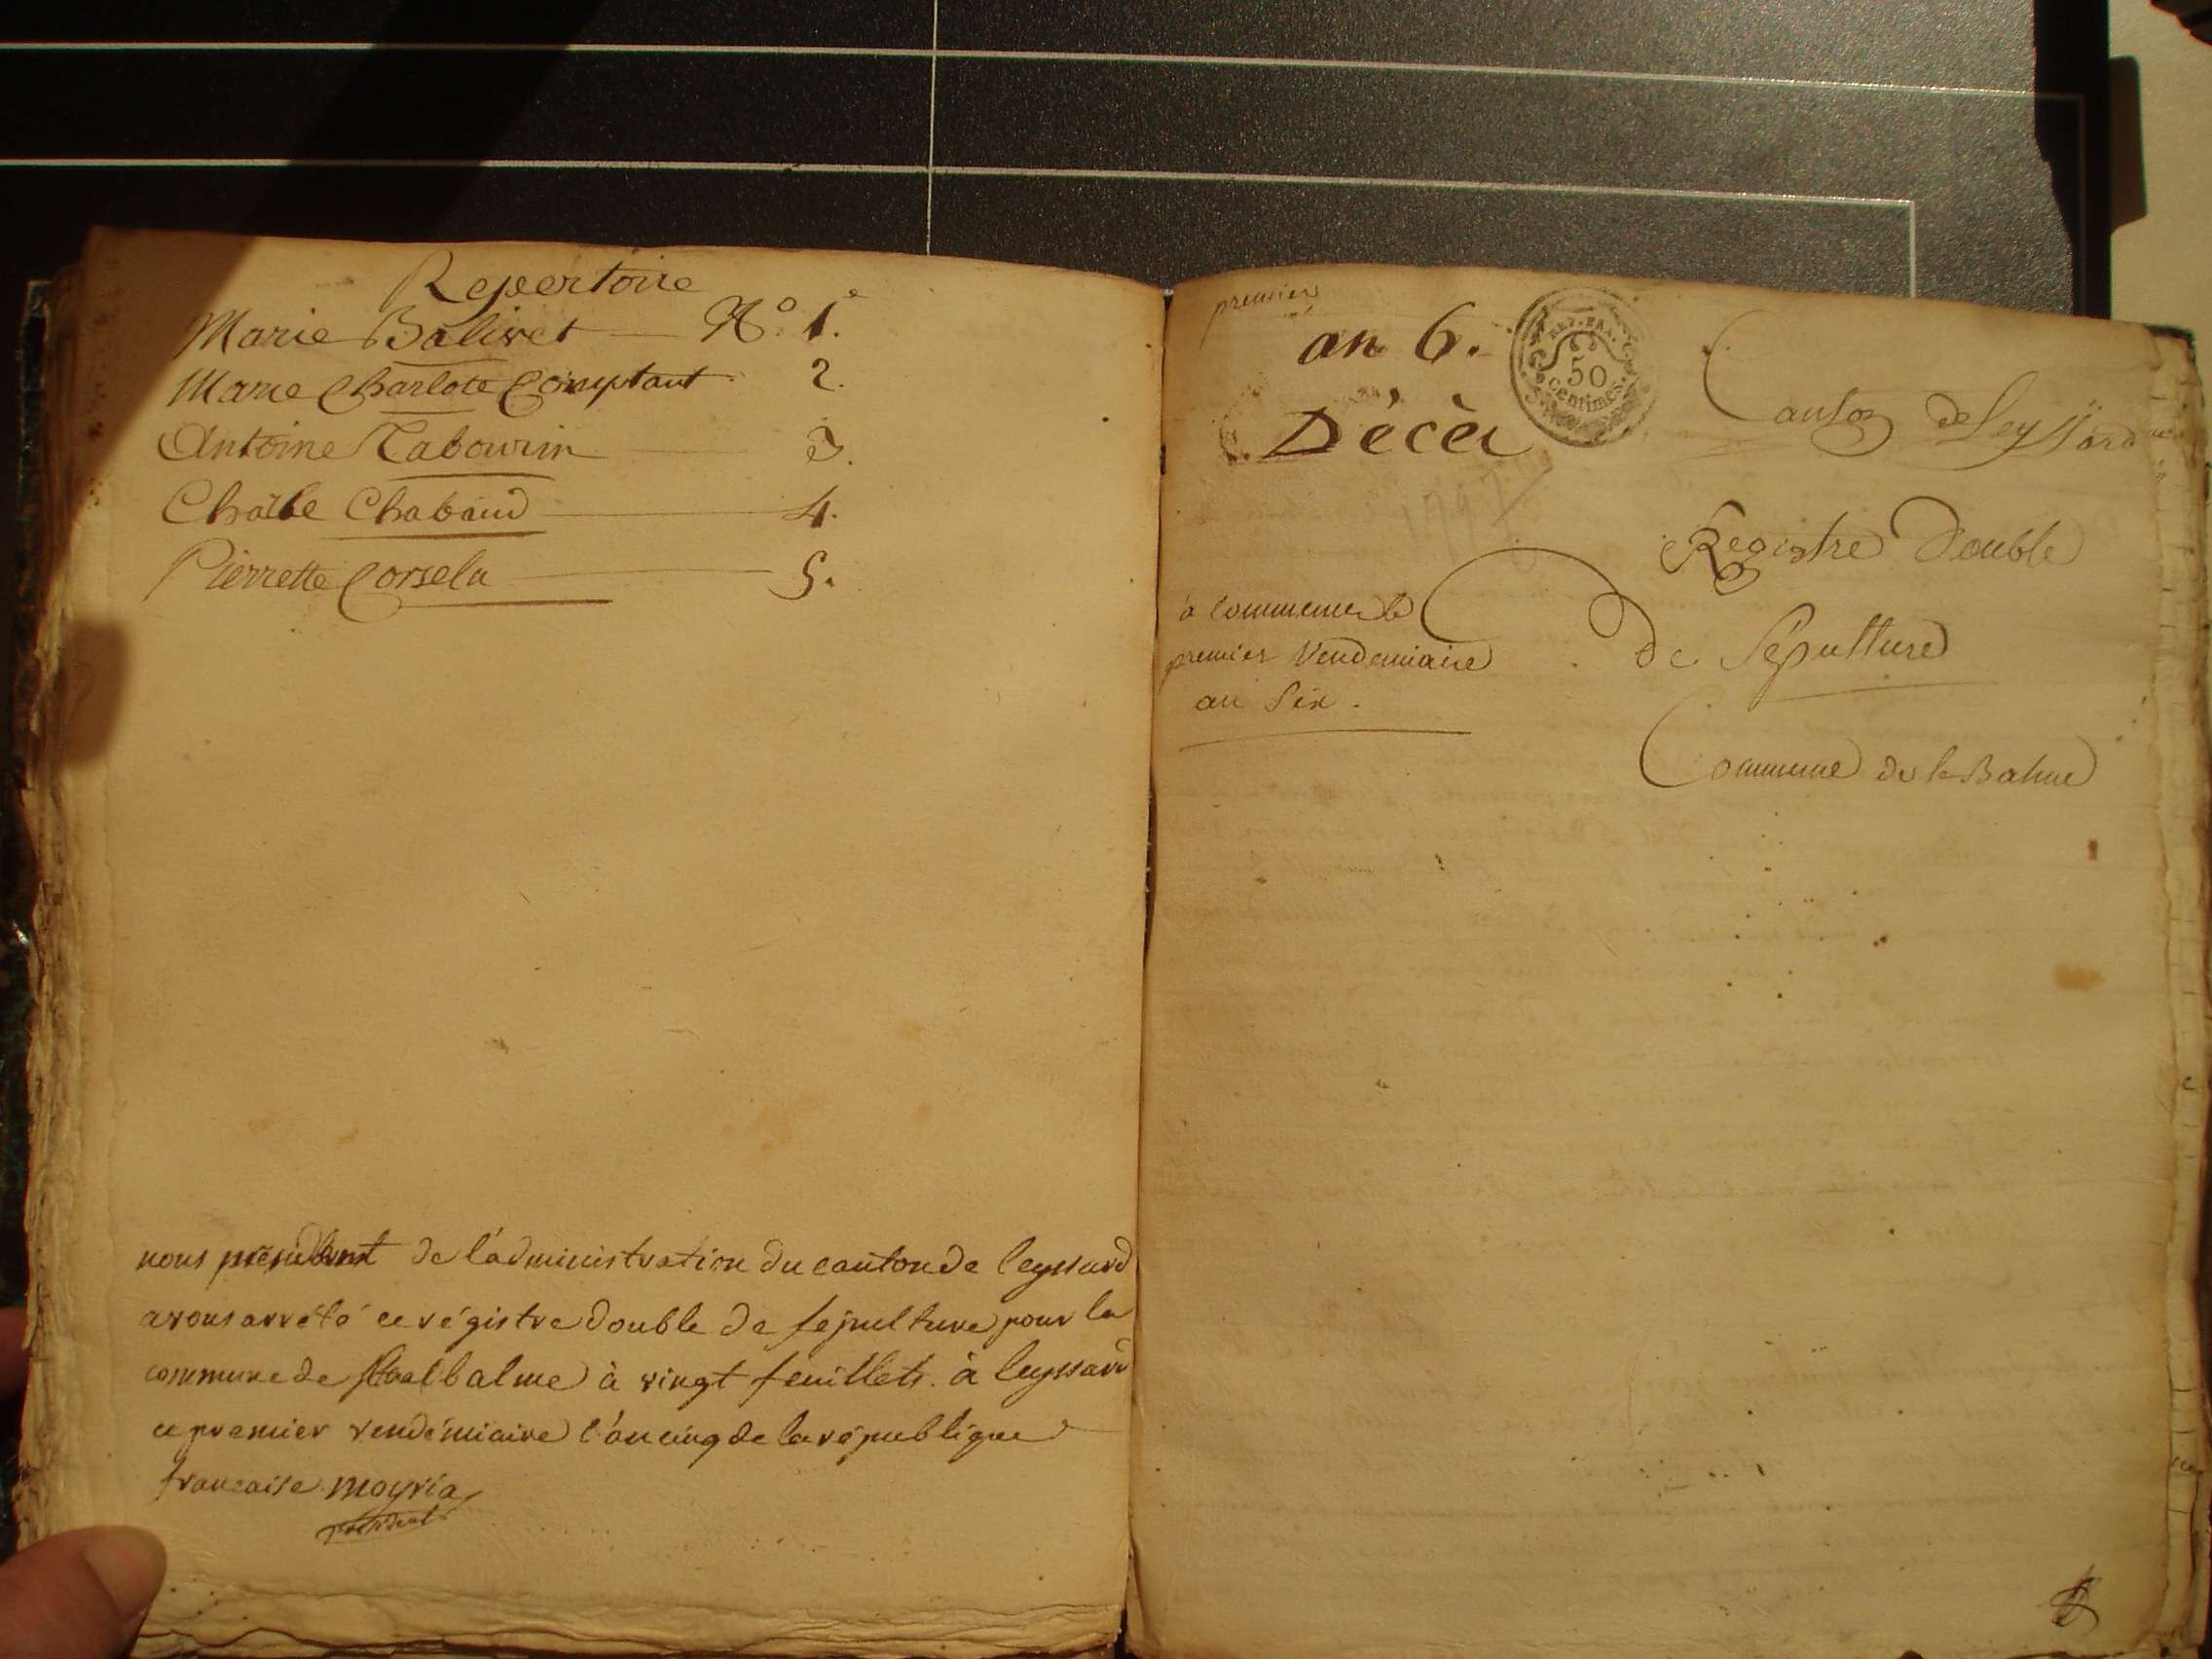 Repertoire
Marie Balivet — No. 1.
Marie Charlote Comptant 2.
Antoine Tabourin 3.
Chabaud 4.
Pierrette 5.
nous président de l'administration du canton de leyssard
avons arrété ce régistre double de sepulture pour la
commune de labalme à vingt feuillets. à leyssard
ce premier vendémiaire l'an cinq de la république
francaise. moyria
président
premier
an 6.
REP. FRA.
50
centimes.
Décès
1797
Canton de Leyssard
Registre Double
à commencer le
premier Vendemiaire
an Six.
De Sépulture
Commune de la Balme